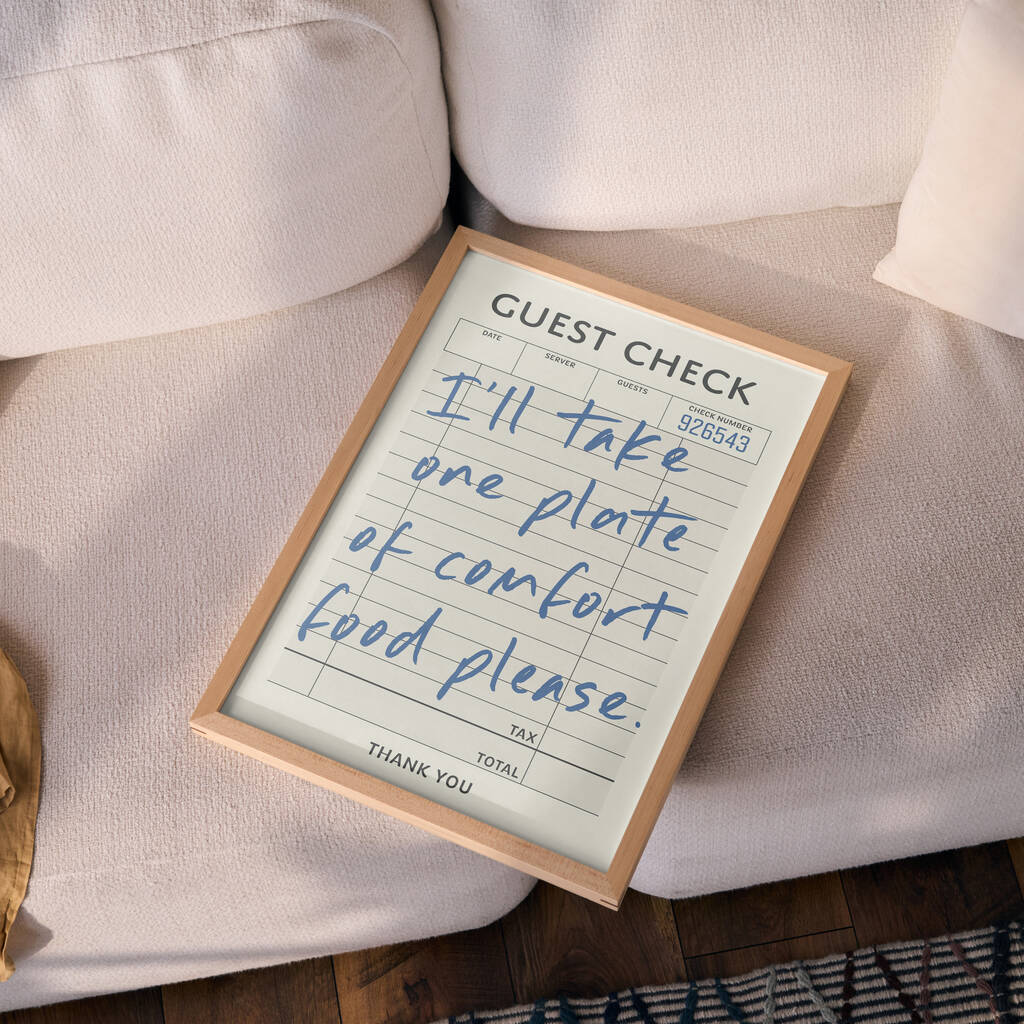 GUEST CHECK
DATE SERVER GUESTS CHECK NUMBER
926543
I'll take
one plate
of comfort
food please.
TAX
TOTAL
THANK YOU